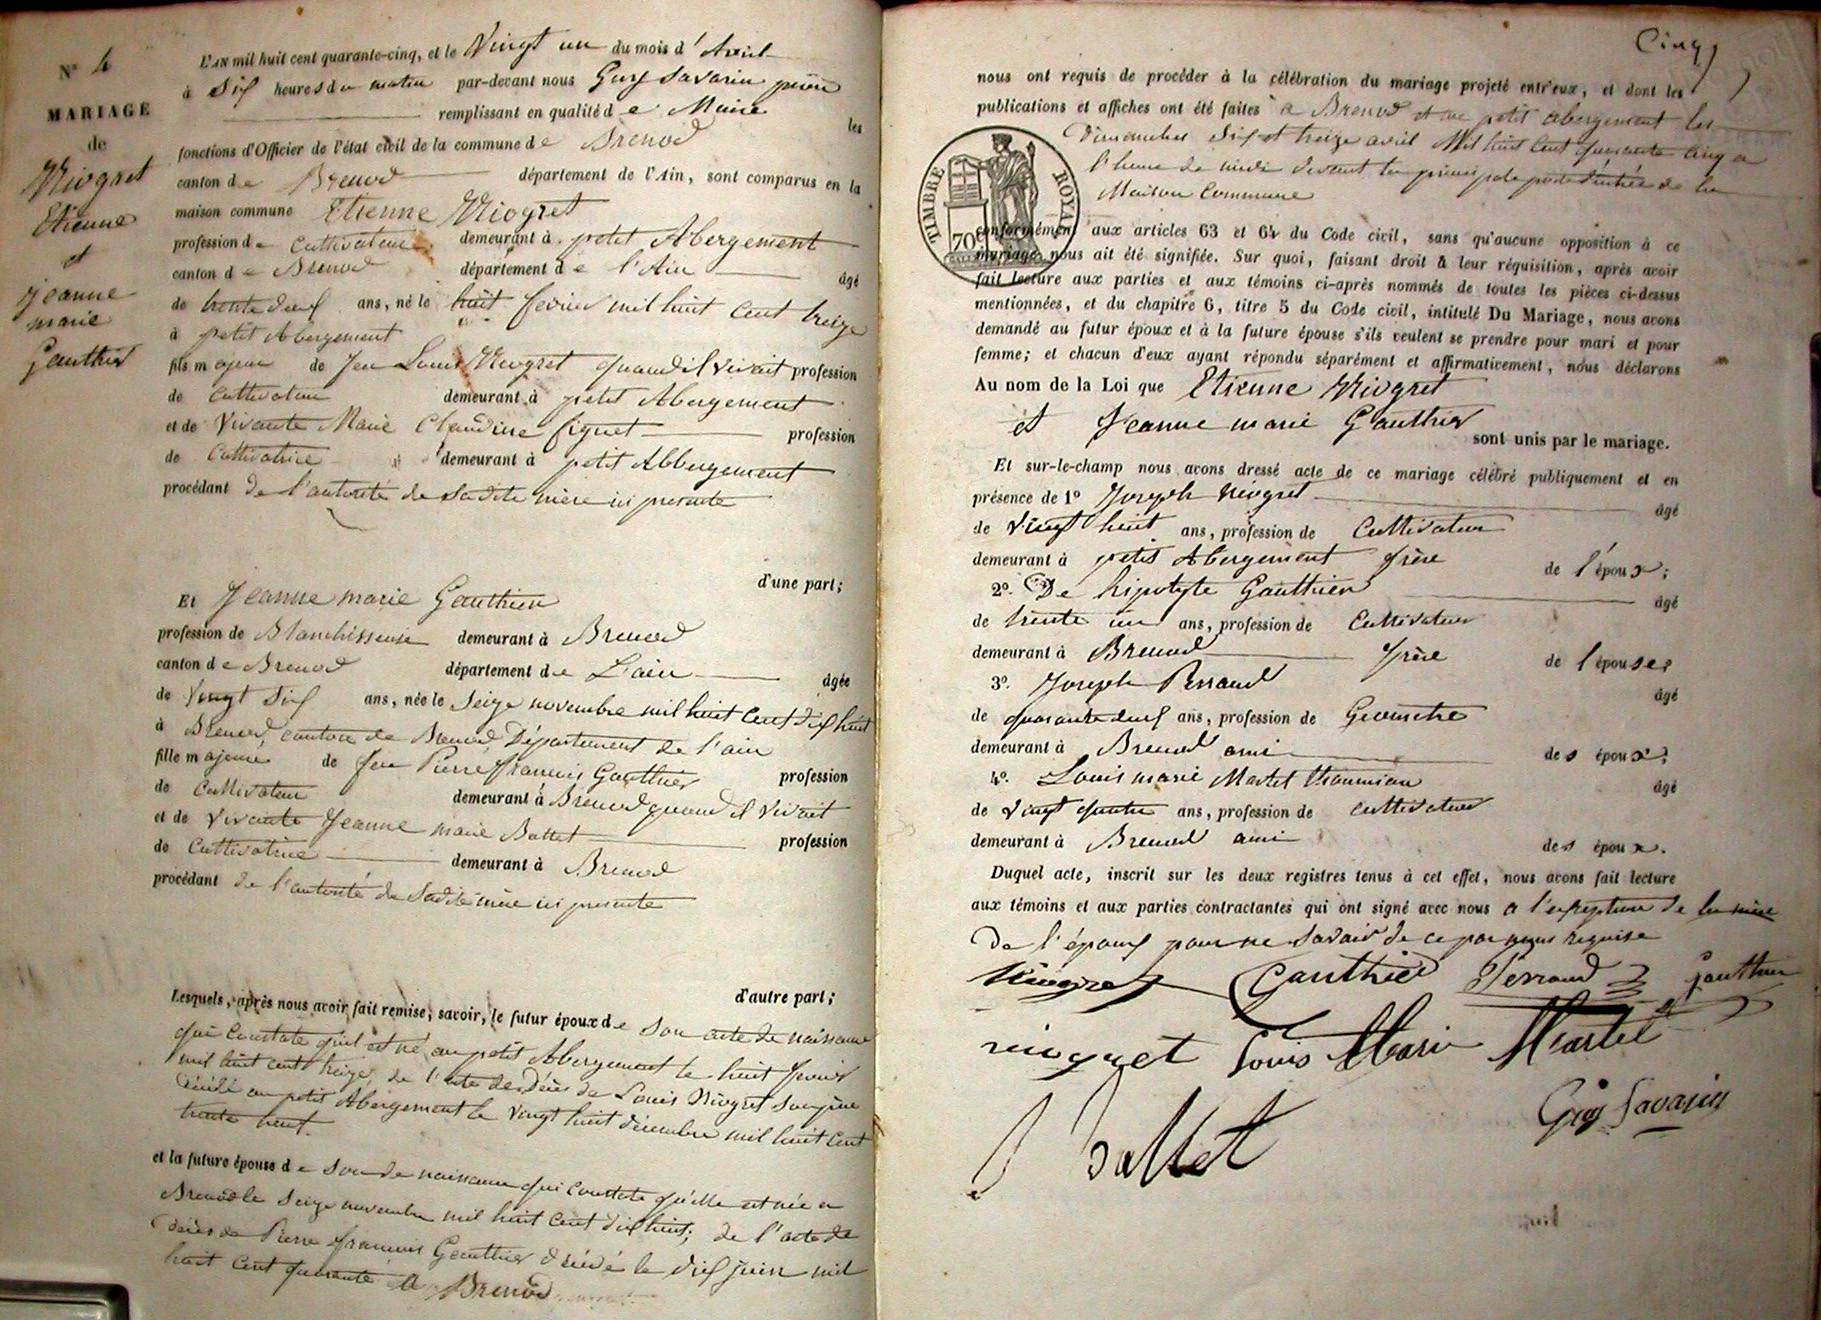 N° 4
MARIAGE
de
Niogret
Etienne
et
jeanne
marie
Gauthier
L'AN mil huit cent quarante-cinq, et le Vingt un du mois d'Avril
à dix heures du matin par-devant nous Guy Savarin
remplissant en qualité de Maire les
fonctions d'Officier de l'état civil de la commune de Brenod
canton de Brenod département de l'Ain, sont comparus en la
maison commune Etienne Niogret
profession de Cultivateur demeurant à petit Abergement
canton de Brenod département de l'Ain âgé
de trente deux ans, né le huit fevrier mil huit cent treize
à petit Abergement
fils majeur de feu Louis Niogret quand il vivait profession
de cultivateur demeurant à petit Abergement
et de Vivante Marie Claudine figuet profession
de Cultivatrice demeurant à petit Abbergement
procédant de l'autorité de sadite mère ici presente
d'une part;
Et Jeanne marie Gauthier
profession de Blanchisseuse demeurant à Brenod
canton de Brenod département de L'ain âgée
de vingt six ans, née le seize novembre mil huit cent dix huit
à Brenod, canton de Brenod, Département de l'ain
fille majeure de feu Pierre françois Gauthier profession
de cultivateur demeurant à Brenod quand il vivait
et de vivante Jeanne marie Ballet profession
de Cultivatrice demeurant à Brenod
procédant de l'autorité de Sadite mère ici presente
d'autre part;
Lesquels, après nous avoir fait remise, savoir, le futur époux de son acte de naissance
qui constate qu'il est né au petit Abergement le huit fevrier
mil huit cent treize, de l'acte de décès de Louis Niogret son père
décédé au petit Abergement le vingt huit décembre mil huit cent
trente
et la future épouse de son de naissance qui constate qu'elle est née a
Brenod le seize novembre mil huit cent dix huit; de l'acte de
décès de Pierre françois Gauthier décédé le dix juin mil
huit cent quarante a Brenod
Cinq
nous ont requis de procéder à la célébration du mariage projeté entr'eux, et dont les
publications et affiches ont été faites a Brenod et au petit abergement les
dimanches six et treize avril Mil huit cent quarante cinq a
l'heure de midi devant la principale porte d'entrée de la
Maison Commune
TIMBRE ROYAL
70
conformément aux articles 63 et 64 du Code civil, sans qu'aucune opposition à ce
mariage nous ait été signifiée. Sur quoi, faisant droit à leur réquisition, après avoir
fait lecture aux parties et aux témoins ci-après nommés de toutes les pièces ci-dessus
mentionnées, et du chapitre 6, titre 5 du Code civil, intitulé Du Mariage, nous avons
demandé au futur époux et à la future épouse s'ils veulent se prendre pour mari et pour
femme; et chacun d'eux ayant répondu séparément et affirmativement, nous déclarons
Au nom de la Loi que Etienne Niogret
et Jeanne marie Gauthier
sont unis par le mariage.
Et sur-le-champ nous avons dressé acte de ce mariage célébré publiquement et en
présence de 1° Joseph niogret âgé
de vingt huit ans, profession de Cultivateur
demeurant à petit Abergement frère de l'époux;
2°. De hipolyte Gauthier âgé
de trente un ans, profession de Cultivateur
demeurant à Brenod frère de l'épouse;
3°. Joseph Perraud âgé
de quarante deux ans, profession de Géomètre
demeurant à Brenod ami des époux;
4°. Louis marie Martel âgé
de vingt quatre ans, profession de cultivateur
demeurant à Brenod ami des époux.
Duquel acte, inscrit sur les deux registres tenus à cet effet, nous avons fait lecture
aux témoins et aux parties contractantes qui ont signé avec nous a l'exception de la mère
De l'époux pour ne savoir de ce par nous requise
Niogret Gauthier Perraud Gauthier
niogret Louis Marie Martel
Guy Savarin
J Ballet